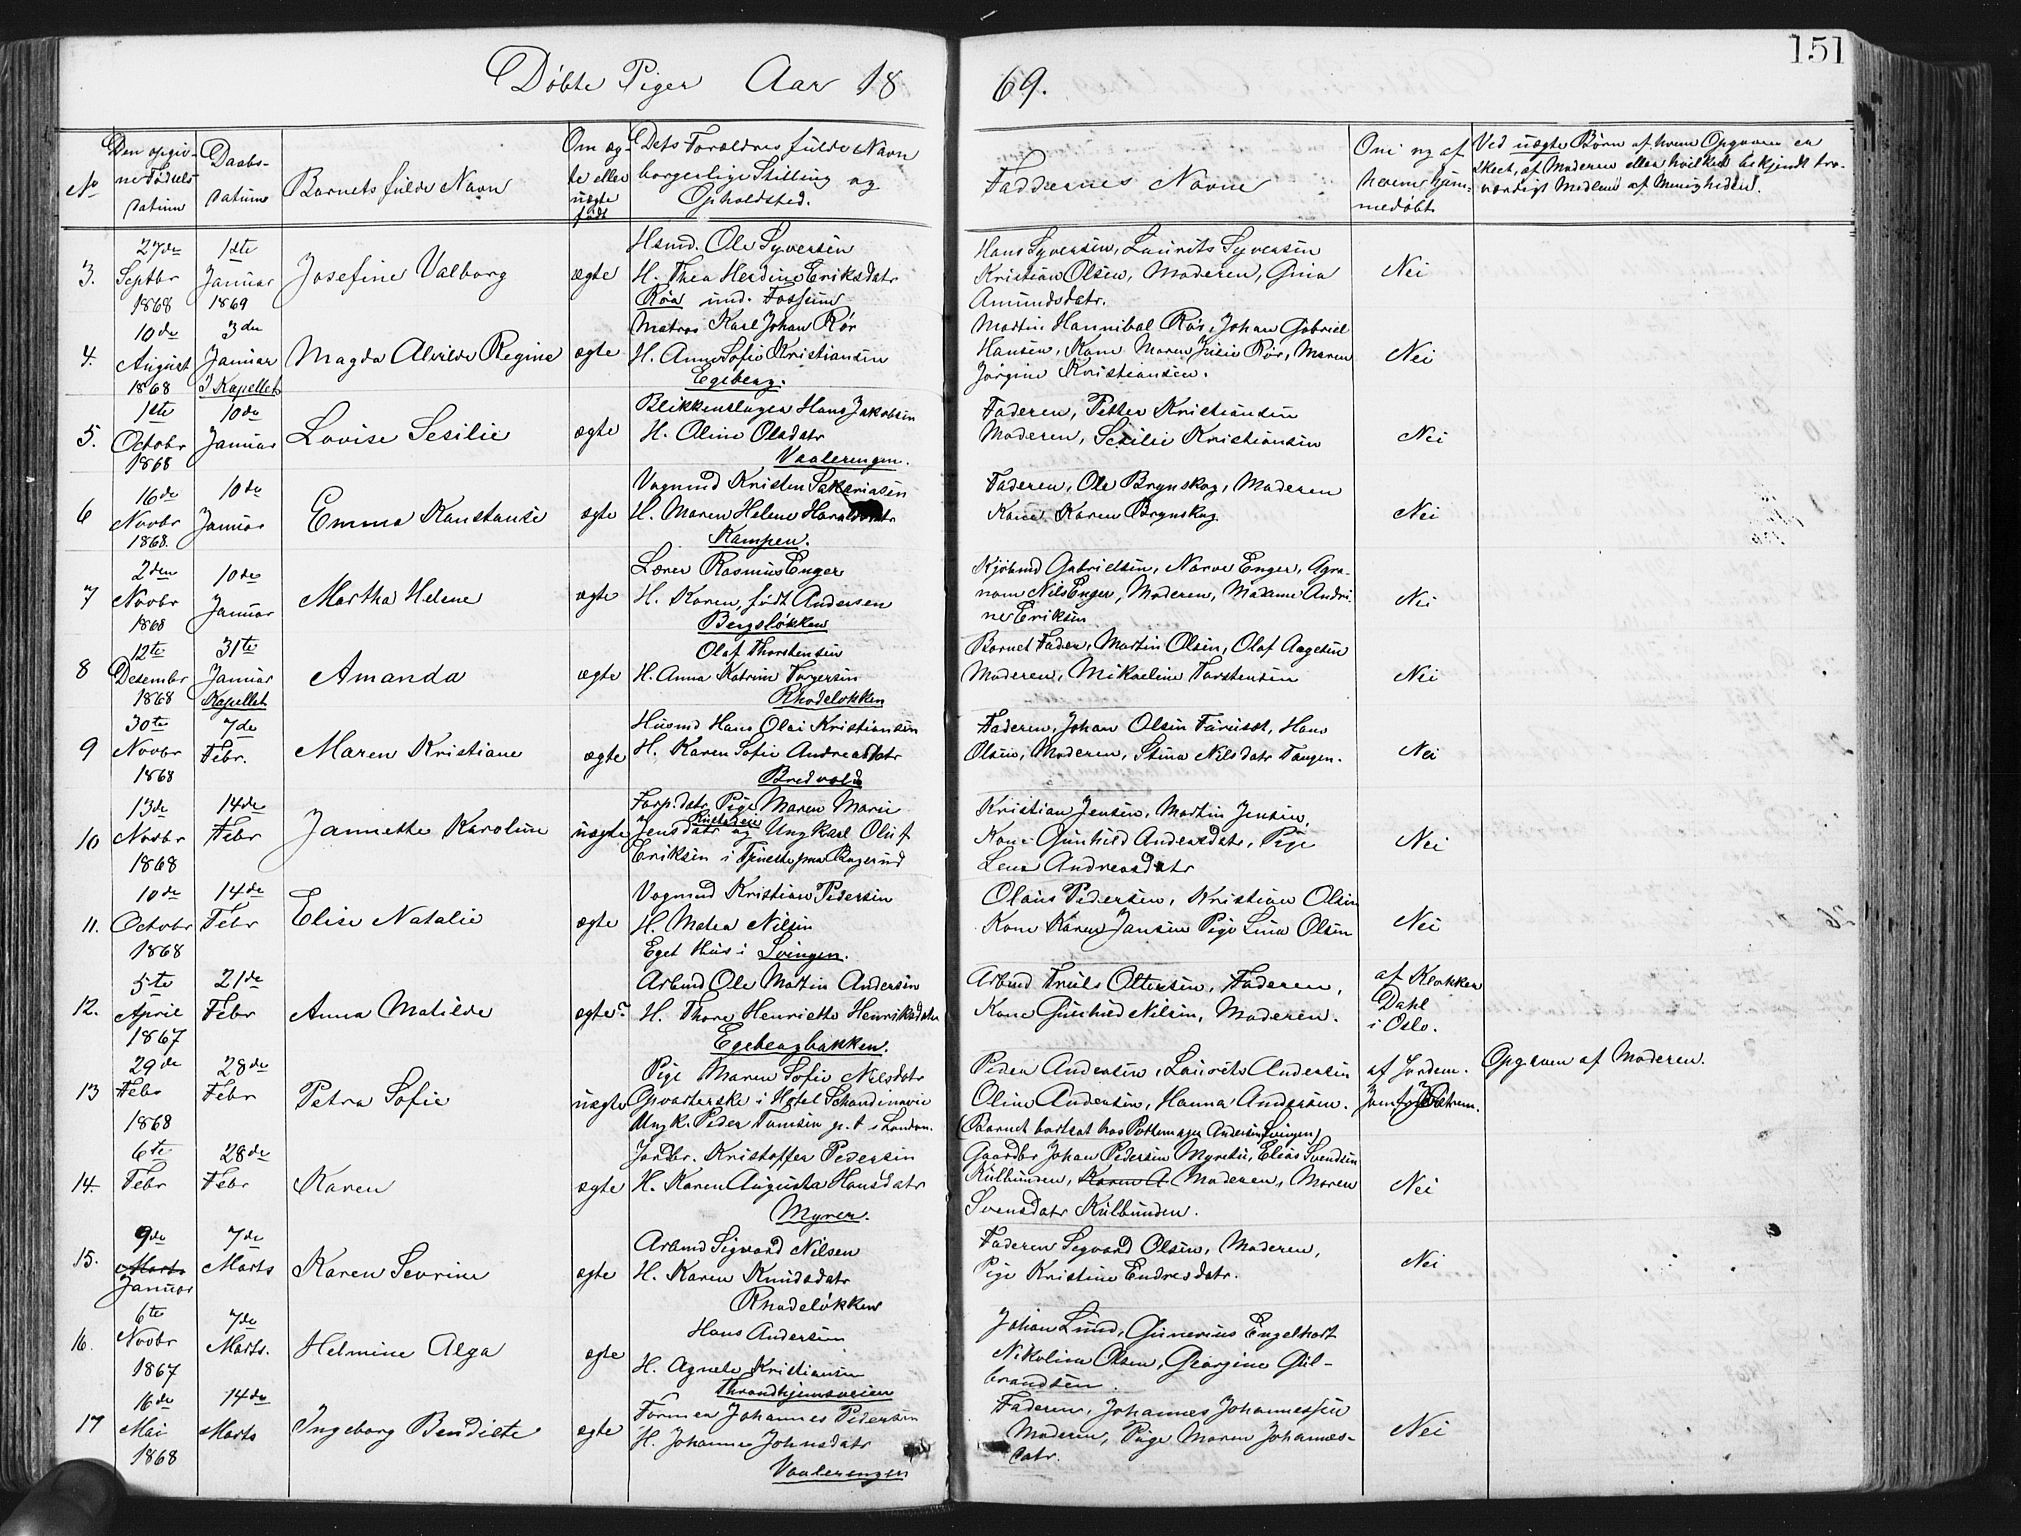 151
Døbte Piger Aar 18 69.
No
Den opgiv-
ne Fødsels
datum
Daabs-
datum
Barnets fulde Navn
Om æg-
te eller
uægte
født
Dets Forældres fulde Navn
borgerlige Stilling og
Opholdsted.
Faddernes Navne
Om og af
hvem hjem-
medøbt
Ved uægte Børn af hvem Opgaven er
skeet, af Moderen eller hvilket bekjendt tro-
værdigt Medlem af Menigheden.
3.
27de
Septbr
1868
1ste
Januar
1869
Josefine Valborg
ægte
Hsmd. Ole Syversen
H. Thea Herdine Eriksdatr
Röa und. Fossum
Hans Syversen, Laurits Syversen
Kristian Olsen, Moderen, Gina
Amundsdatr.
Nei
4.
10de
August
1868
3die
Januar
I Kapellet
Magda Alvilde Regine
ægte
Matros Karl Johan Rör
H. Anne Sofie Kristiansen
Egeberg.
Martin Hannibal Rör, Johan Gabriel
Hansen, Kone Maren Julie Rör, Maren
Jörgine Kristiansen.
Nei
5.
1ste
Octobr
1868
10de
Januar
Lovise Sesilie
ægte
Blikkenslager Hans Jakobsen
H. Oline Olsdatr
Vaalerengen.
Faderen, Petter Kristiansen
Moderen, Sesilie Kristiansen
Nei
6
16de
Novbr
1868.
10de
Januar
Emma Konstanse
ægte
Vognmd Kristen Sakeriasen
H. Maren Helene Haraldsdatr
Kampen.
Faderen, Ole Brynskog, Moderen
Kone Karen Brynskog.
Nei
7
2den
Novbr
1868
10de
Januar
Martha Helene
ægte
Lærer Rasmus Enger
H. Karen, født Andersen
Bergsløkken
Kjøbmd Gabrielsen, Narve Enger, Agro-
nom Nils Enger, Moderen, Madame Andri-
ne Eriksen
Nei
8
12te
Desembr
1868
31te
Januar
Kapellet
Amanda
ægte
Olaf Thorstensen
H. Anna Katrine Torgersen
Rhodeløkken
Barnet Fader, Martin Olsen, Olaf Aagesen
Moderen, Mikaeline Torstensen
Nei
9
30te
Novbr
1868
7de
Febr.
Maren Kristiane
ægte
Husmd Hans Olai Kristiansen
H. Karen Sofie Andreasdatr
Bredvold
Faderen, Johan Olsen Furuset, Hans
Olsen, Moderen, Stina Nilsdatr Tangen.
Nei
10
13de
Novbr
1868
14de
Febr
Jannette Karoline
uægte
Forp.datr Pige Maren Marie
Jensdatr og Ungkarl Oluf
Eriksen i Tjeneste paa Bogerud
Kristian Jensen, Martin Jensen,
Kone Gunhild Andersdatr, Pige
Lena Andreasdatr
Nei
11.
10de
Octobr
1868
14de
Febr
Elise Natalie
ægte
Vognmd Kristian Pedersen
H. Matea Nilsen
Eget Hus i Svingen.
Olaus Pedersen, Kristian Olsen
Kone Karen Jansen Pige Lina Olsen
Nei
12.
5te
April
1867
21de
Febr
Anna Matilde
ægte
Arbmd Ole Martin Andersen
H. Thora Henriette Henriksdatr
Egebergbakken.
Arbmd Truls Ottersen, Faderen,
Kone Gunhild Nilsen, Moderen.
af Klokker
Dahl
i Oslo.
13
29de
Febr
1868
28de
Febr
Petra Sofie
uægte
Pige Maren Sofie Nilsdatr
Opvarterske i Hotel Skandinavie
Ungk. Peder Tomsen
Peder Andersen, Laurits Andersen
Oline Andersen, Hanna Andersen.
(Barnet bortsat hos Pottemager Andersen Svingen)
af Jordem.
Opgaven af Moderen.
14.
6te
Febr
28de
Febr
Karen
ægte
Jordbr. Kristoffer Pedersen
H. Karen Augusta Hansdatr
Myrer.
Gaardbr Johan Pedersen Myrer, Elias Svendsen
Kulbunden, Karen A Moderen, Maren
Svensdatr Kulbunden.
Nei
15.
9de
Marts
Januar
7de
Marts
Karen Sevrine
ægte
Arbmd Sigvard Nilsen
H. Karen Knudsdatr
Rhodeløkken
Faderen Segvard Olsen, Moderen,
Pige Kristine Endresdatr.
Nei
16.
6te
Novbr
1867
7de
Marts.
Helmine Alga
ægte
Hans Andersen
H. Agnete Kristiansen
Throndhjemsveien
Johan Lund, Gunerius Engelhart
Nikoline Olsen, Georgine Gul-
brandsen.
17
16de
Mai
1868
14de
Marts
Ingeborg Bendicte
ægte
Formen Johannes Pedersen
H. Johanne Johnsdatr
Vaalerengen
Faderen, Johannes Johannessen
Moderen, Pige Maren Johannes-
datr.
Nei